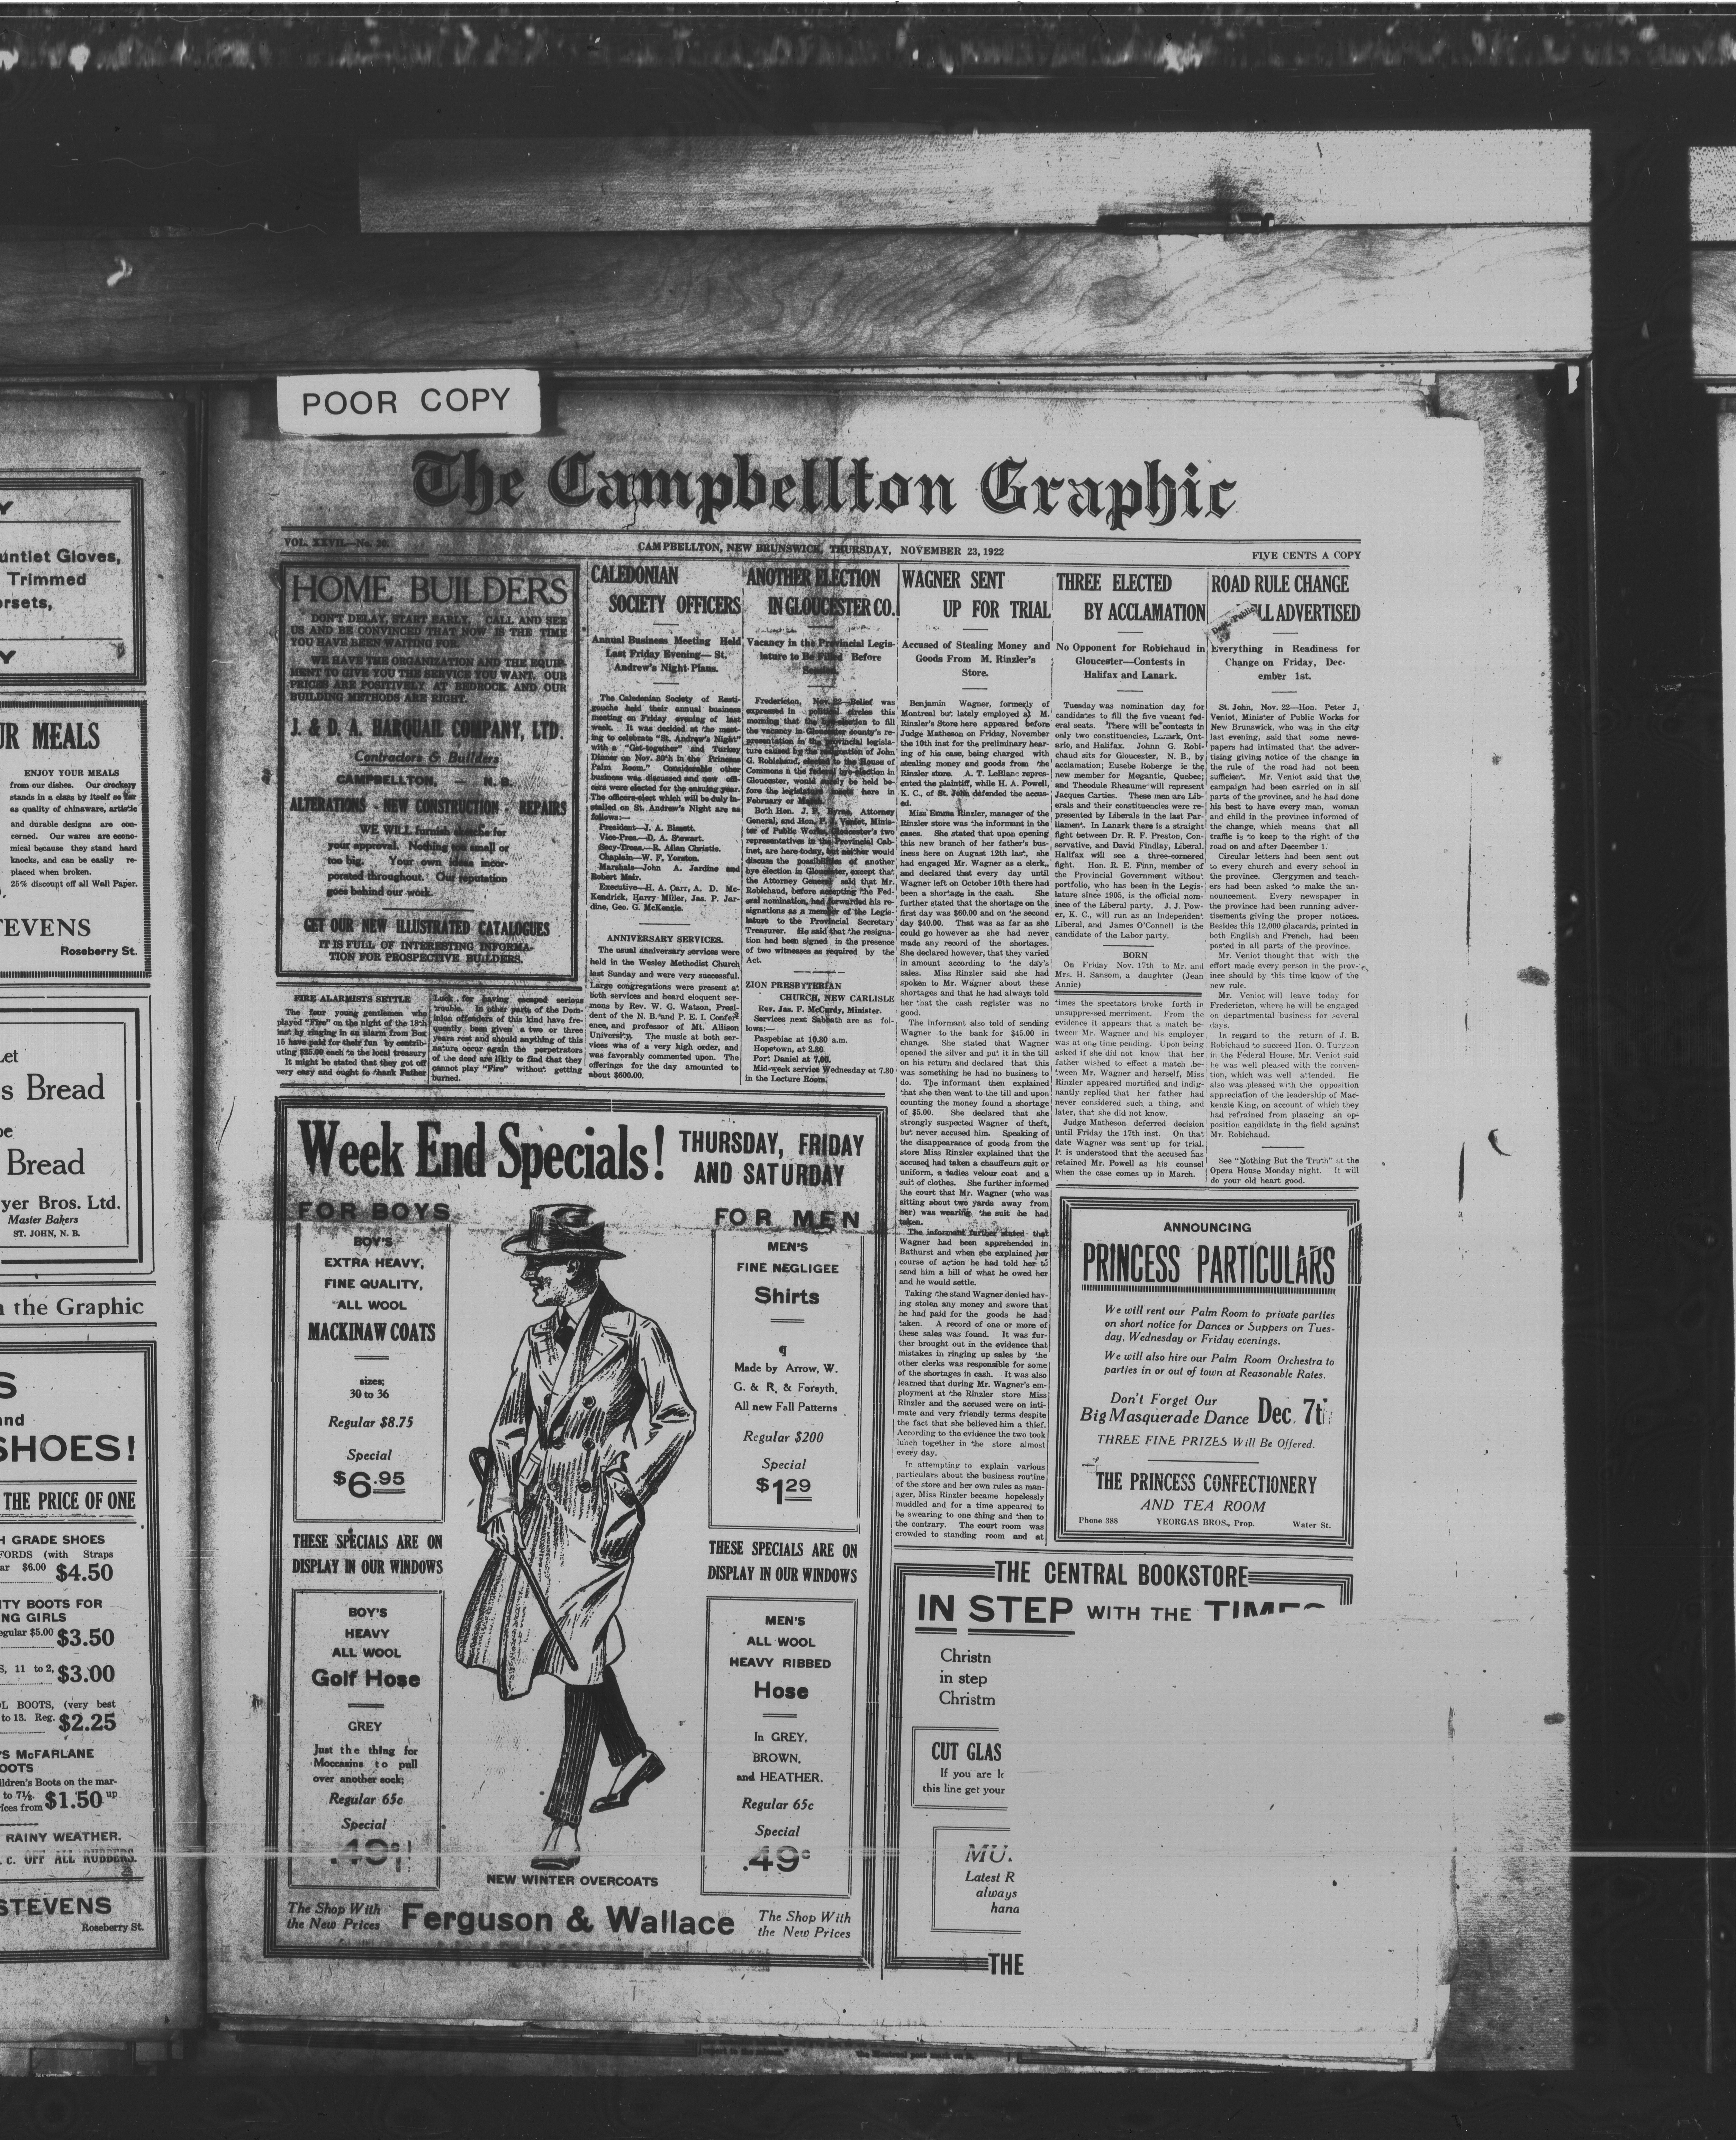 POOR COPY
The Campbellton Graphic
VOL. XXVII.—No.
CAMPBELLTON, NEW BRUNSWICK, THURSDAY, NOVEMBER 23, 1922
FIVE CENTS A COPY
HOME BUILDERS
DON'T DELAY, START EARLY, CALL AND SEE
US AND BE CONVINCED THAT NOW IS THE TIME
YOU HAVE BEEN WAITING FOR.
WE HAVE THE ORGANIZATION AND THE EQUIP-
MENT TO GIVE YOU THE SERVICE YOU WANT. OUR
PRICES ARE POSITIVELY AT BEDROCK AND OUR
BUILDING METHODS ARE RIGHT.
J. & D. A. HARQUAIL COMPANY, LTD.
Contractors & Builders
CAMPBELLTON, — N. B.
ALTERATIONS - NEW CONSTRUCTION - REPAIRS
WE WILL furnish sketche for
your approval. Nothing too small or
too big. Your own ideas incor-
porated throughout. Our reputation
goes behind our work.
GET OUR NEW ILLUSTRATED CATALOGUES
IT IS FULL OF INTERESTING INFORMA-
TION FOR PROSPECTIVE BUILDERS.
FIRE ALARMISTS SETTLE
The four young gentlemen who
played "Fire" on the night of the 18th
inst by ringing in an alarm from Box
15 have paid for their fun by contrib-
uting $25.00 each to the local treasury
It might be stated that they got off
very easy and ought to thank Father
Luck for having escaped serious
trouble. In other parts of the Dom-
inion offenders of this kind have fre-
quently been given a two or three
years rest and should anything of this
nature occur again the perpetrators
of the deed are likely to find that they
cannot play "Fire" without getting
burned.
CALEDONIAN
SOCIETY OFFICERS
Annual Business Meeting Held
Last Friday Evening— St.
Andrew's Night Plans.
The Caledonian Society of Resti-
gouche held their annual business
meeting on Friday evening of last
week. It was decided at the meet-
ing to celebrate "St. Andrew's Night"
with a "Get-together" and Turkey
Dinner on Nov. 30th in the Princess
Palm Room." Considerable other
business was discussed and new offi-
cers were elected for the ensuing year.
The officers-elect which will be duly in-
stalled on St. Andrew's Night are as
follows:—
President—J. A. Bissett.
Vice-Pres.—D. A. Stewart.
Secy-Treas.—R. Allan Christie.
Chaplain—W. F. Yorston.
Marshals—John A. Jardine and
Robert Mair.
Executive—H. A. Carr, A. D. Mc-
Kendrick, Harry Miller, Jas. P. Jar-
dine, Geo. G. McKenzie.
ANNIVERSARY SERVICES.
The usual anniversary services were
held in the Wesley Methodist Church
last Sunday and were very successful.
Large congregations were present at
both services and heard eloquent ser-
mons by Rev. W. G. Watson, Presi-
dent of the N. B. and P. E. I. Confer-
ence, and professor of Mt. Allison
University. The music at both ser-
vices was of a very high order, and
was favorably commented upon. The
offerings for the day amounted to
about $600.00.
ANOTHER ELECTION
IN GLOUCESTER CO.
Vacancy in the Provincial Legis-
lature to Be Filled Before
Session.
Fredericton, Nov. 22—Belief was
expressed in political circles this
morning that the bye-election to fill
the vacancy in Gloucester county's re-
presentation in the provincial legisla-
ture caused by the resignation of John
G. Robichaud, elected to the House of
Commons n the federal bye-election in
Gloucester, would surely be held be-
fore the legislature meets here in
February or March.
Both Hon. J. P. Byrne, Attorney
General, and Hon. P. J. Veniot, Minis-
ter of Public Works, Gloucester's two
representatives in the Provincial Cab-
inet, are here today, but neither would
discuss the possibilities of another
bye election in Gloucester, except that
the Attorney General said that Mr.
Robichaud, before accepting the Fed-
eral nomination, had forwarded his re-
signations as a member of the Legis-
lature to the Provincial Secretary
Treasurer. He said that the resigna-
tion had been signed in the presence
of two witnesses as required by the
Act.
ZION PRESBYTERIAN
CHURCH, NEW CARLISLE
Rev. Jas. F. McCurdy, Minister.
Services next Sabbath are as fol-
lows:—
Paspebiac at 10.30 a.m.
Hopetown, at 2.30
Port Daniel at 7.00.
Mid-week service Wednesday at 7.30
in the Lecture Room.
WAGNER SENT
UP FOR TRIAL
Accused of Stealing Money and
Goods From M. Rinzler's
Store.
Benjamin Wagner, formerly of
Montreal but lately employed at M.
Rinzler's Store here appeared before
Judge Matheson on Friday, November
the 10th inst for the preliminary hear-
ing of his case, being charged with
stealing money and goods from the
Rinzler store. A. T. LeBlanc repres-
ented the plaintiff, while H. A. Powell,
K. C., of St. John defended the accus-
ed.
Miss Emma Rinzler, manager of the
Rinzler store was the informant in the
cases. She stated that upon opening
this new branch of her father's bus-
iness here on August 12th last, she
had engaged Mr. Wagner as a clerk,
and declared that every day until
Wagner left on October 10th there had
been a shortage in the cash. She
further stated that the shortage on the
first day was $60.00 and on the second
day $40.00. That was as far as she
could go hower as she had never
made any record of the shortages.
She declared however, that they varied
in amount according to the day's
sales. Miss Rinzler said she had
spoken to Mr. Wagner about these
shortages and that he had always told
her that the cash register was no
good.
The informant also told of sending
Wagner to the bank for $45.00 in
change. She stated that Wagner
opened the silver and put it in the till
on his return and declared that this
was something he had no business to
do. The informant then explained
that she then went to the till and upon
counting the money found a shortage
of $5.00. She declared that she
strongly suspected Wagner of theft,
but never accused him. Speaking of
the disappearance of goods from the
store Miss Rinzler explained that the
accused had taken a chauffeurs suit or
uniform, a ladies velour coat and a
suit of clothes. She further informed
the court that Mr. Wagner (who was
sitting about two yards away from
her) was wearing the suit he had
taken.
The informant further stated that
Wagner had been apprehended in
Bathurst and when she explained her
course of action he had told her to
send him a bill of what he owed her
and he would settle.
Taking the stand Wagner denied hav-
ing stolen any money and swore that
he had paid for the goods he had
taken. A record of one or more of
these sales was found. It was fur-
ther brought out in the evidence that
mistakes in ringing up sales by the
other clerks was responsible for some
of the shortages in cash. It was also
learned that during Mr. Wagner's em-
ployment at the Rinzler store Miss
Rinzler and the accused were on inti-
mate and very friendly terms despite
the fact that she believed him a thief.
According to the evidence the two took
lunch together in the store almost
every day.
In attempting to explain various
particulars about the business routine
of the store and her own rules as man-
ager, Miss Rinzler became hopelessly
muddled and for a time appeared to
be swearing to one thing and then to
the contrary. The court room was
crowded to standing room and at
THREE ELECTED
BY ACCLAMATION
No Opponent for Robichaud in
Gloucester—Contests in
Halifax and Lanark.
Tuesday was nomination day for
candidates to fill the five vacant fed-
eral seats. There will be contests in
only two constituencies, Lanark, Ont-
ario, and Halifax. Johnn G. Robi-
chaud sits for Gloucester, N. B., by
acclamation; Eusebe Roberge is the
new member for Megantic, Quebec;
and Theodule Rheaume will represent
Jacques Carties. These men are Lib-
erals and their constituencies were re-
presented by Liberals in the last Par-
liament. In Lanark there is a straight
fight between Dr. R. F. Preston, Con-
servative, and David Findlay, Liberal.
Halifax will see a three-cornered
fight. Hon. R. E. Finn, member of
the Provincial Government without
portfolio, who has been in the Legis-
lature since 1905, is the official nom-
inee of the Liberal party. J. J. Pow-
er, K. C., will run as an Independent
Liberal, and James O'Connell is the
candidate of the Labor party.
BORN
On Friday Nov. 17th to Mr. and
Mrs. H. Sansom, a daughter (Jean
Annie)
times the spectators broke forth in
unsuppressed merriment. From the
evidence it appears that a match be-
tween Mr. Wagner and his employer
was at one time pending. Upon being
asked if she did not know that her
father wished to effect a match be-
tween Mr. Wagner and herself, Miss
Rinzler appeared mortified and indig-
nantly replied that her father had
never considered such a thing, and
later, that she did not know.
Judge Matheson deferred decision
until Friday the 17th inst. On that
date Wagner was sent up for trial.
It is understood that the accused has
retained Mr. Powell as his counsel
when the case comes up in March.
ROAD RULE CHANGE
LL ADVERTISED
Everything in Readiness for
Change on Friday, Dec-
ember 1st.
St. John, Nov. 22—Hon. Peter J.
Veniot, Minister of Public Works for
New Brunswick, who was in the city
last evening, said that some news-
papers had intimated that the adver-
tising giving notice of the change in
the rule of the road had not been
sufficient. Mr. Veniot said that the
campaign had been carried on in all
parts of the province, and he had done
his best to have every man, woman
and child in the province informed of
the change, which means that all
traffic is to keep to the right of the
road on and after December 1.
Circular letters had been sent out
to every church and every school in
the province. Clergymen and teach-
ers had been asked to make the an-
nouncement. Every newspaper in
the province had been running adver-
tisements giving the proper notices.
Besides this 12,000 placards, printed in
both English and French, had been
posted in all parts of the province.
Mr. Veniot thought that with the
effort made every person in the prov-
ince should by this time know of the
new rule.
Mr. Veniot will leave today for
Fredericton, where he will be engaged
on departmental business for several
days.
In regard to the return of J. B.
Robichaud to succeed Hon. O. Turgeon
in the Federal House, Mr. Veniot said
he was well pleased with the conven-
tion, which was well attended. He
also was pleased with the opposition
appreciation of the leadership of Mac-
kenzie King, on account of which they
had refrained from plaacing an op-
position candidate in the field against
Mr. Robichaud.
See "Nothing But the Truth" at the
Opera House Monday night. It will
do your old heart good.
Week End Specials!
THURSDAY, FRIDAY
AND SATURDAY
FOR BOYS
BOY'S
EXTRA HEAVY,
FINE QUALITY,
ALL WOOL
MACKINAW COATS
sizes;
30 to 36
Regular $8.75
Special
$6.95
THESE SPECIALS ARE ON
DISPLAY IN OUR WINDOWS
BOY'S
HEAVY
ALL WOOL
Golf Hose
GREY
Just the thing for
Moccasins to pull
over another sock;
Regular 65c
Special
.49c
FOR MEN
MEN'S
FINE NEGLIGEE
Shirts
¶
Made by Arrow, W.
G. & R, & Forsyth,
All new Fall Patterns
Regular $200
Special
$1 29
THESE SPECIALS ARE ON
DISPLAY IN OUR WINDOWS
MEN'S
ALL WOOL
HEAVY RIBBED
Hose
In GREY,
BROWN,
and HEATHER.
Regular 65c
Special
.49c
NEW WINTER OVERCOATS
The Shop With
the New Prices
Ferguson & Wallace
The Shop With
the New Prices
ANNOUNCING
PRINCESS PARTICULARS
We will rent our Palm Room to private parties
on short notice for Dances or Suppers on Tues-
day, Wednesday or Friday evenings.
We will also hire our Palm Room Orchestra to
parties in or out of town at Reasonable Rates.
Don't Forget Our
Big Masquerade Dance Dec. 7t
THREE FINE PRIZES Will Be Offered.
THE PRINCESS CONFECTIONERY
AND TEA ROOM
Phone 388 YEORGAS BROS., Prop. Water St.
THE CENTRAL BOOKSTORE
IN STEP WITH THE TIMES
Christn
in step
Christm
CUT GLAS
If you are
this line get your
MU.
Latest R
always
hana
THE
Y
untlet Gloves,
Trimmed
rsets,
Y
UR MEALS
ENJOY YOUR MEALS
from our dishes. Our crockery
stands in a class by itself so far
as quality of chinaware, artistic
and durable designs are con-
cerned. Our wares are econo-
mical because they stand hard
knocks, and can be easily re-
placed when broken.
25% discount off all Wall Paper.
TEVENS
Roseberry St.
et
s Bread
be
Bread
yer Bros. Ltd.
Master Bakers
ST. JOHN, N. B.
n the Graphic
S
and
SHOES!
THE PRICE OF ONE
H GRADE SHOES
FORDS (with Straps
ar $6.00 $4.50
ITY BOOTS FOR
NG GIRLS
egular $5.00 $3.50
S, 11 to 2, $3.00
L BOOTS, (very best
to 13. Reg. $2.25
'S McFARLANE
OOTS
ildren's Boots on the mar-
to 7½.
ices from $1.50 up
RAINY WEATHER.
. c. OFF ALL RUBBERS.
STEVENS
Roseberry St.